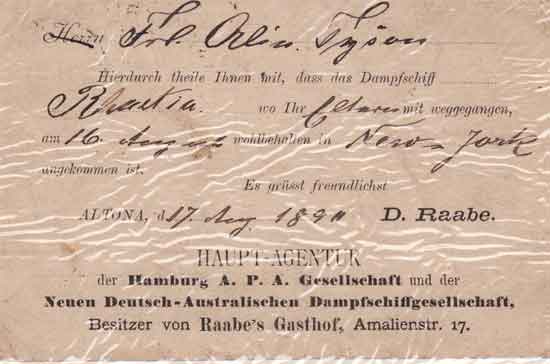 Herrn Frl. Olin. Tyson
Hierdurch theile Ihnen mit, dass das Dampfschiff
Rhaetia. wo Ihr Eltern mit weggegangen,
am 16. August wohlbehalten in New-York
angekommen ist.
Es grüsst freundlichst
ALTONA, d. 17. Aug. 1890 D. Raabe.
HAUPT-AGENTUR
der Hamburg A. P. A. Gesellschaft und der
Neuen Deutsch-Australischen Dampfschiffgesellschaft,
Besitzer von Raabe's Gasthof, Amalienstr. 17.